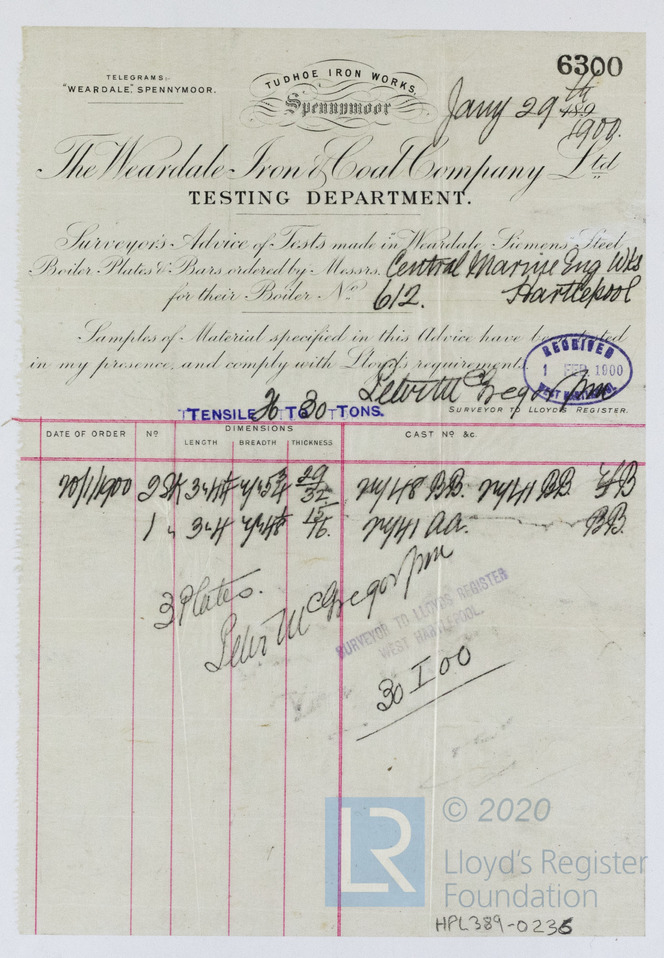 6300
TELEGRAMS:-
"WEARDALE," SPENNYMOOR.
TUDHOE IRON WORKS,
Spennymoor
Jany 29th
189
1900.
The Weardale Iron & Coal Company Ltd
TESTING DEPARTMENT.
Surveyor's Advice of Tests made in Weardale Siemens Steel
Boiler Plates & Bars ordered by Messrs. Central Marine Eng Wks
for their Boiler No 612. Hartlepool
Samples of Material specified in this Advice have been tested
in my presence, and comply with Lloyd's requirements.
RECEIVED
1 FEB. 1900
WEST HARTLEPOOL.
Peter McGregor Jnr
SURVEYOR TO LLOYD'S REGISTER.
TENSILE 26 TO 30 TONS.
DATE OF ORDER No DIMENSIONS CAST No &c.
LENGTH BREADTH THICKNESS
20/1/1900 29/32
1 " 15/16.
3 Plates.
Peter McGregor Jnr
SURVEYOR TO LLOYD'S REGISTER
WEST HARTLEPOOL.
30 I 00
LR
© 2020
Lloyd's Register
Foundation
HPL389-0236